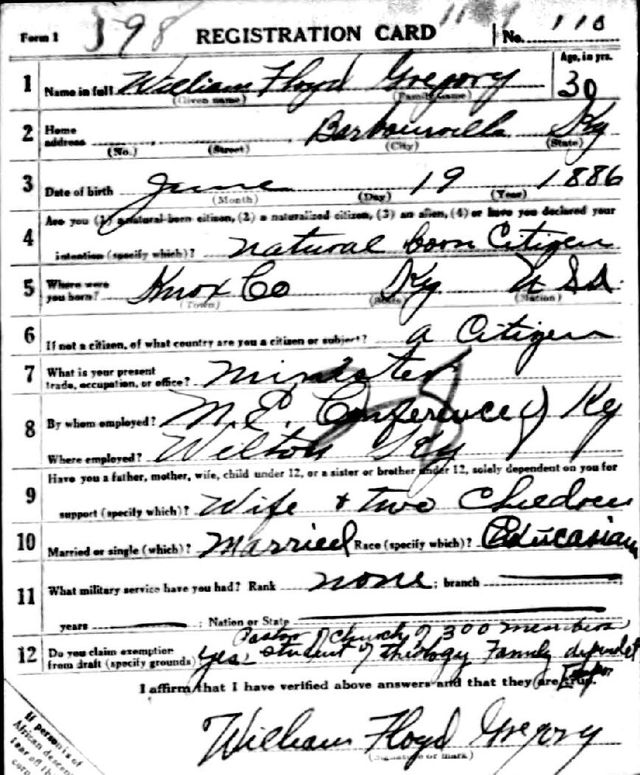 Form 1 398 REGISTRATION CARD No. 110
1 Name in full William Floyd Gregory Age, in yrs. 30
(Given name) (Family name)
2 Home address Barbourville Ky
(No.) (Street) (City) (State)
3 Date of birth June 19 1886
(Month) (Day) (Year)
4 Are you (1) a natural-born citizen, (2) a naturalized citizen, (3) an alien, (4) or have you declared your
intention (specify which)? natural born Citizen
5 Where were you born? Knox Co Ky USA
(Town) (State) (Nation)
6 If not a citizen, of what country are you a citizen or subject? a Citizen
7 What is your present trade, occupation, or office? Minister
8 By whom employed? M.E. Conference of Ky
Where employed? Wilton Ky
9 Have you a father, mother, wife, child under 12, or a sister or brother under 12, solely dependent on you for
support (specify which)? Wife + two Children
10 Married or single (which)? Married Race (specify which)? Caucasian
11 What military service have you had? Rank none; branch
years ; Nation or State
Pastor of church of 300 members
12 Do you claim exemption from draft (specify grounds) Yes, Student of Theology Family dependet
I affirm that I have verified above answers and that they are true.
William Floyd Gregory
(Signature or mark)
If person is of
African descent
tear off th
corn